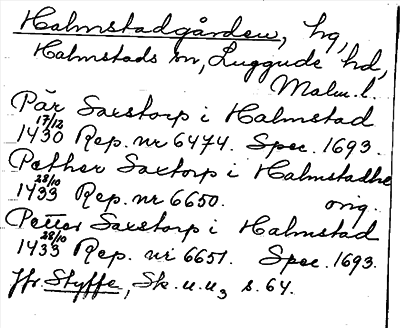 Halmstadgården, hg,
Halmstads sn, Luggude hd,
Malm. l.
Pär Saxstorp i Halmstad
17/12
1430 Rep. nr 6474. Spec. 1693.
Pether Saxtorp i Halmstadhe
28/10
1433 Rep. nr 6650. orig.
Petter Saxstorp i Halmstad
28/10
1433 Rep. nr 6651. Spec. 1693.
Jfr. Styffe, Sk. u. u, s. 64.